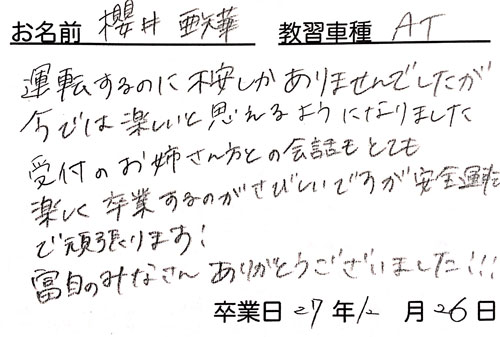 お名前 櫻井 亜矢華 教習車種 AT
運転するのに不安しかありませんでしたが
今では楽しいと思えるようになりました
受付のお姉さん方との会話もとても
楽しく卒業するのがさびしいですが安全運転
で頑張ります!
富自のみなさんありがとうございました!!!
卒業日 27年12月26日